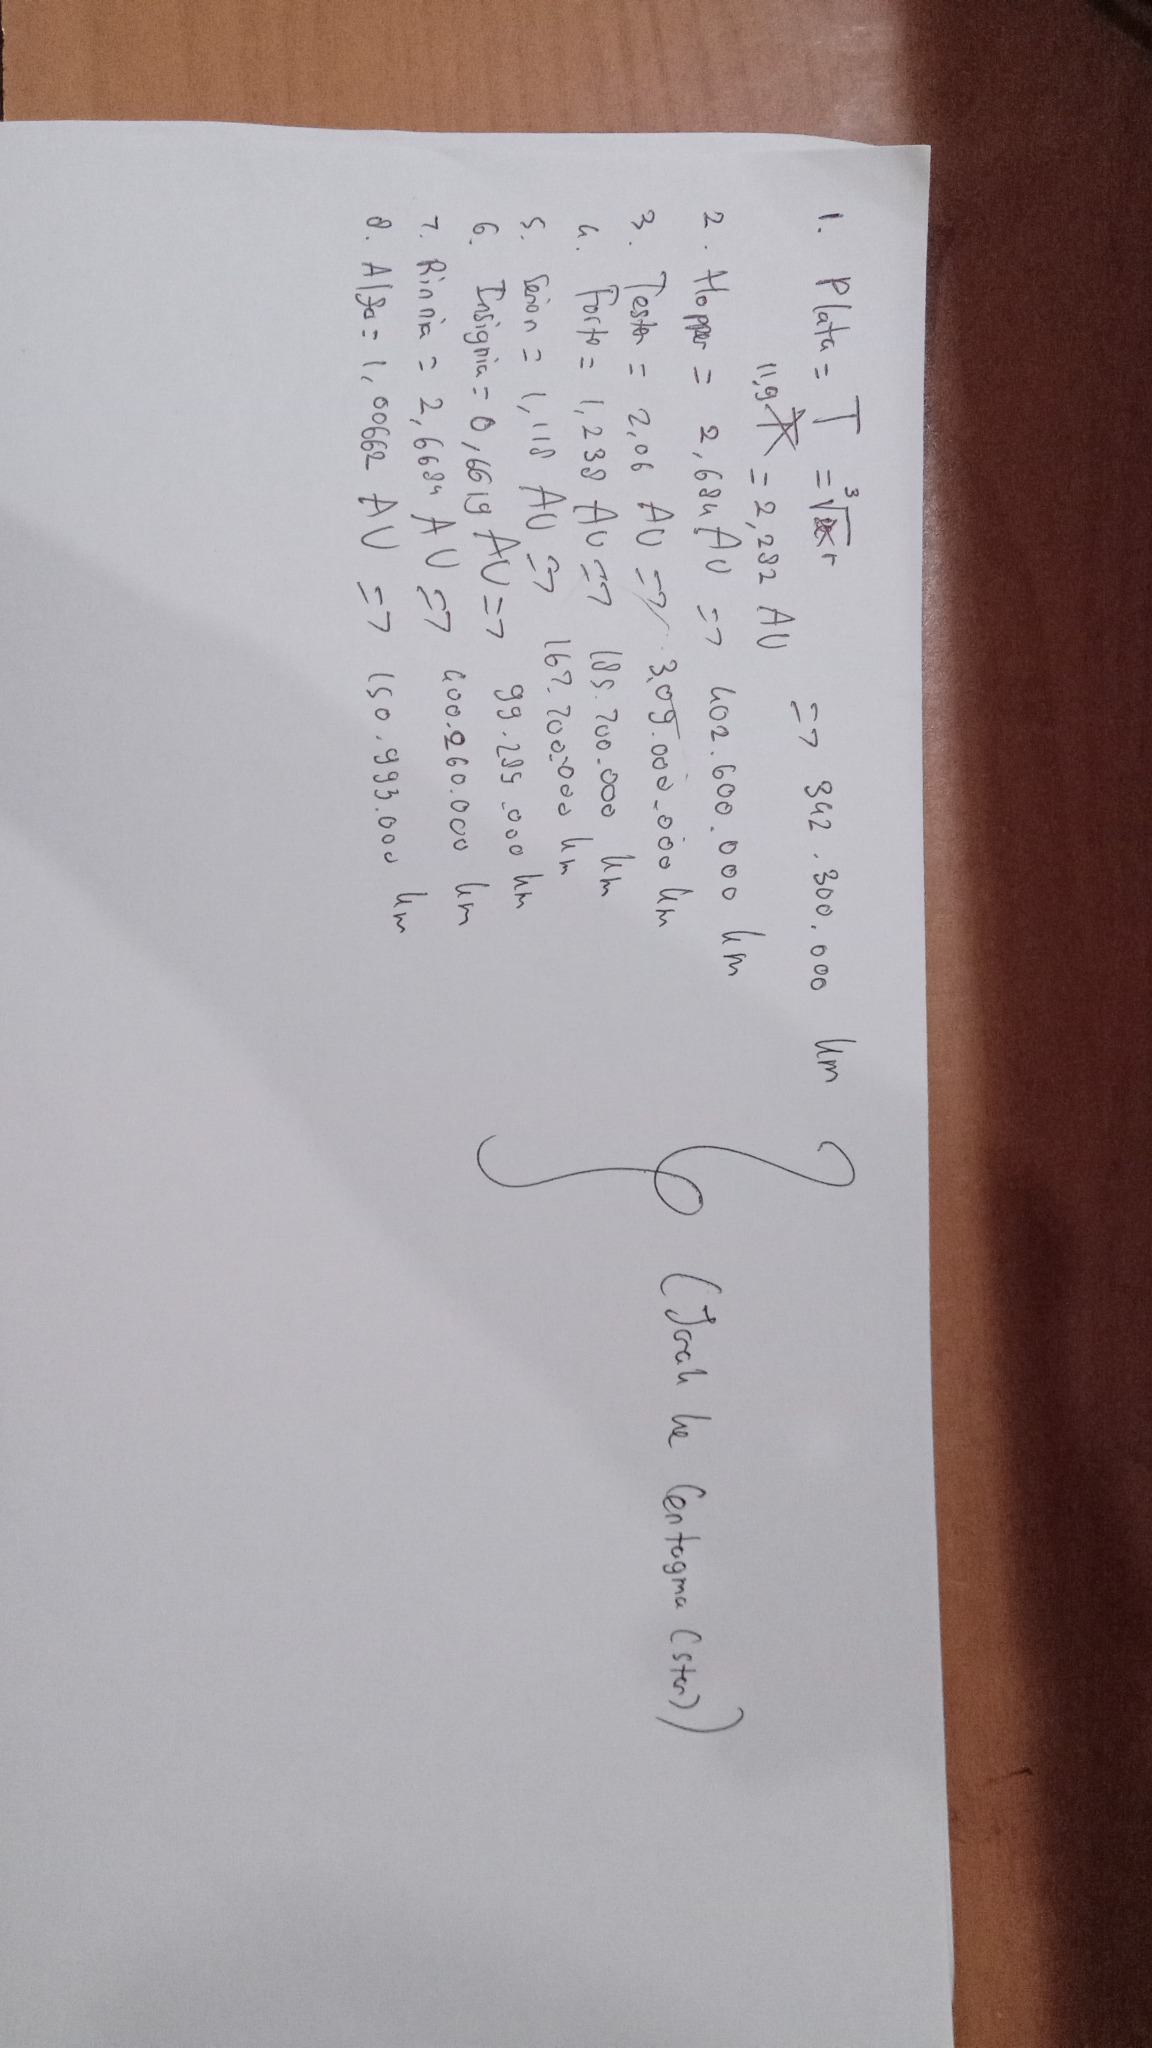 1. Plata = T = ³√ r
11,9 = 2,282 AU => 342.300.000 km
2. Hopper = 2,684 AU => 402.600.000 km
3. Tester = 2,06 AU => 309.000.000 km
4. Forto = 1,238 AU => 185.700.000 km
5. = 1,118 AU => 167.700.000 km
6. Insignia = 0,6619 AU => 99.285.000 km
7. Rinnia = 2,6684 AU => 400.260.000 km
8. = 1,00662 AU => 150.993.000 km
(Jarak ke Centagma (star))